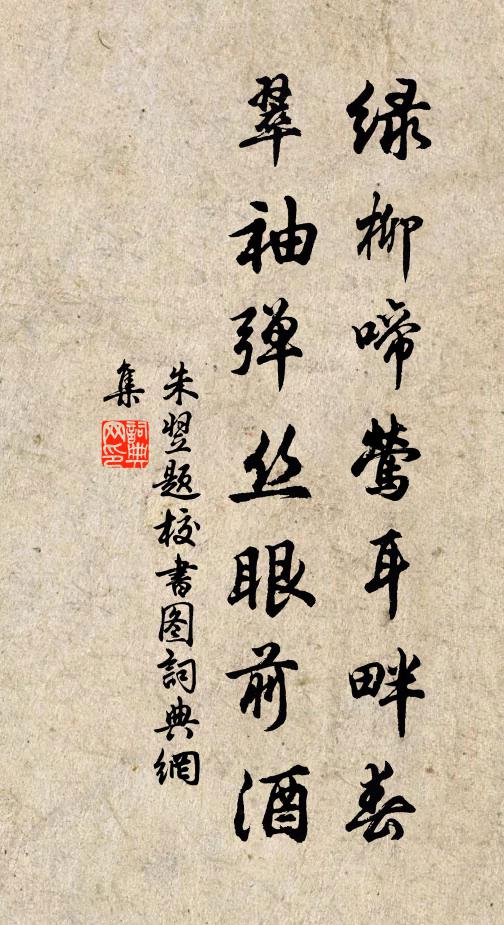 绿柳啼莺耳畔春
翠袖弹丝眼前酒
朱翌题校书图詞典網
集
詞典
网印